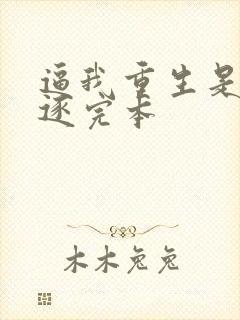 逼我重生是
逐完本
木木兔兔